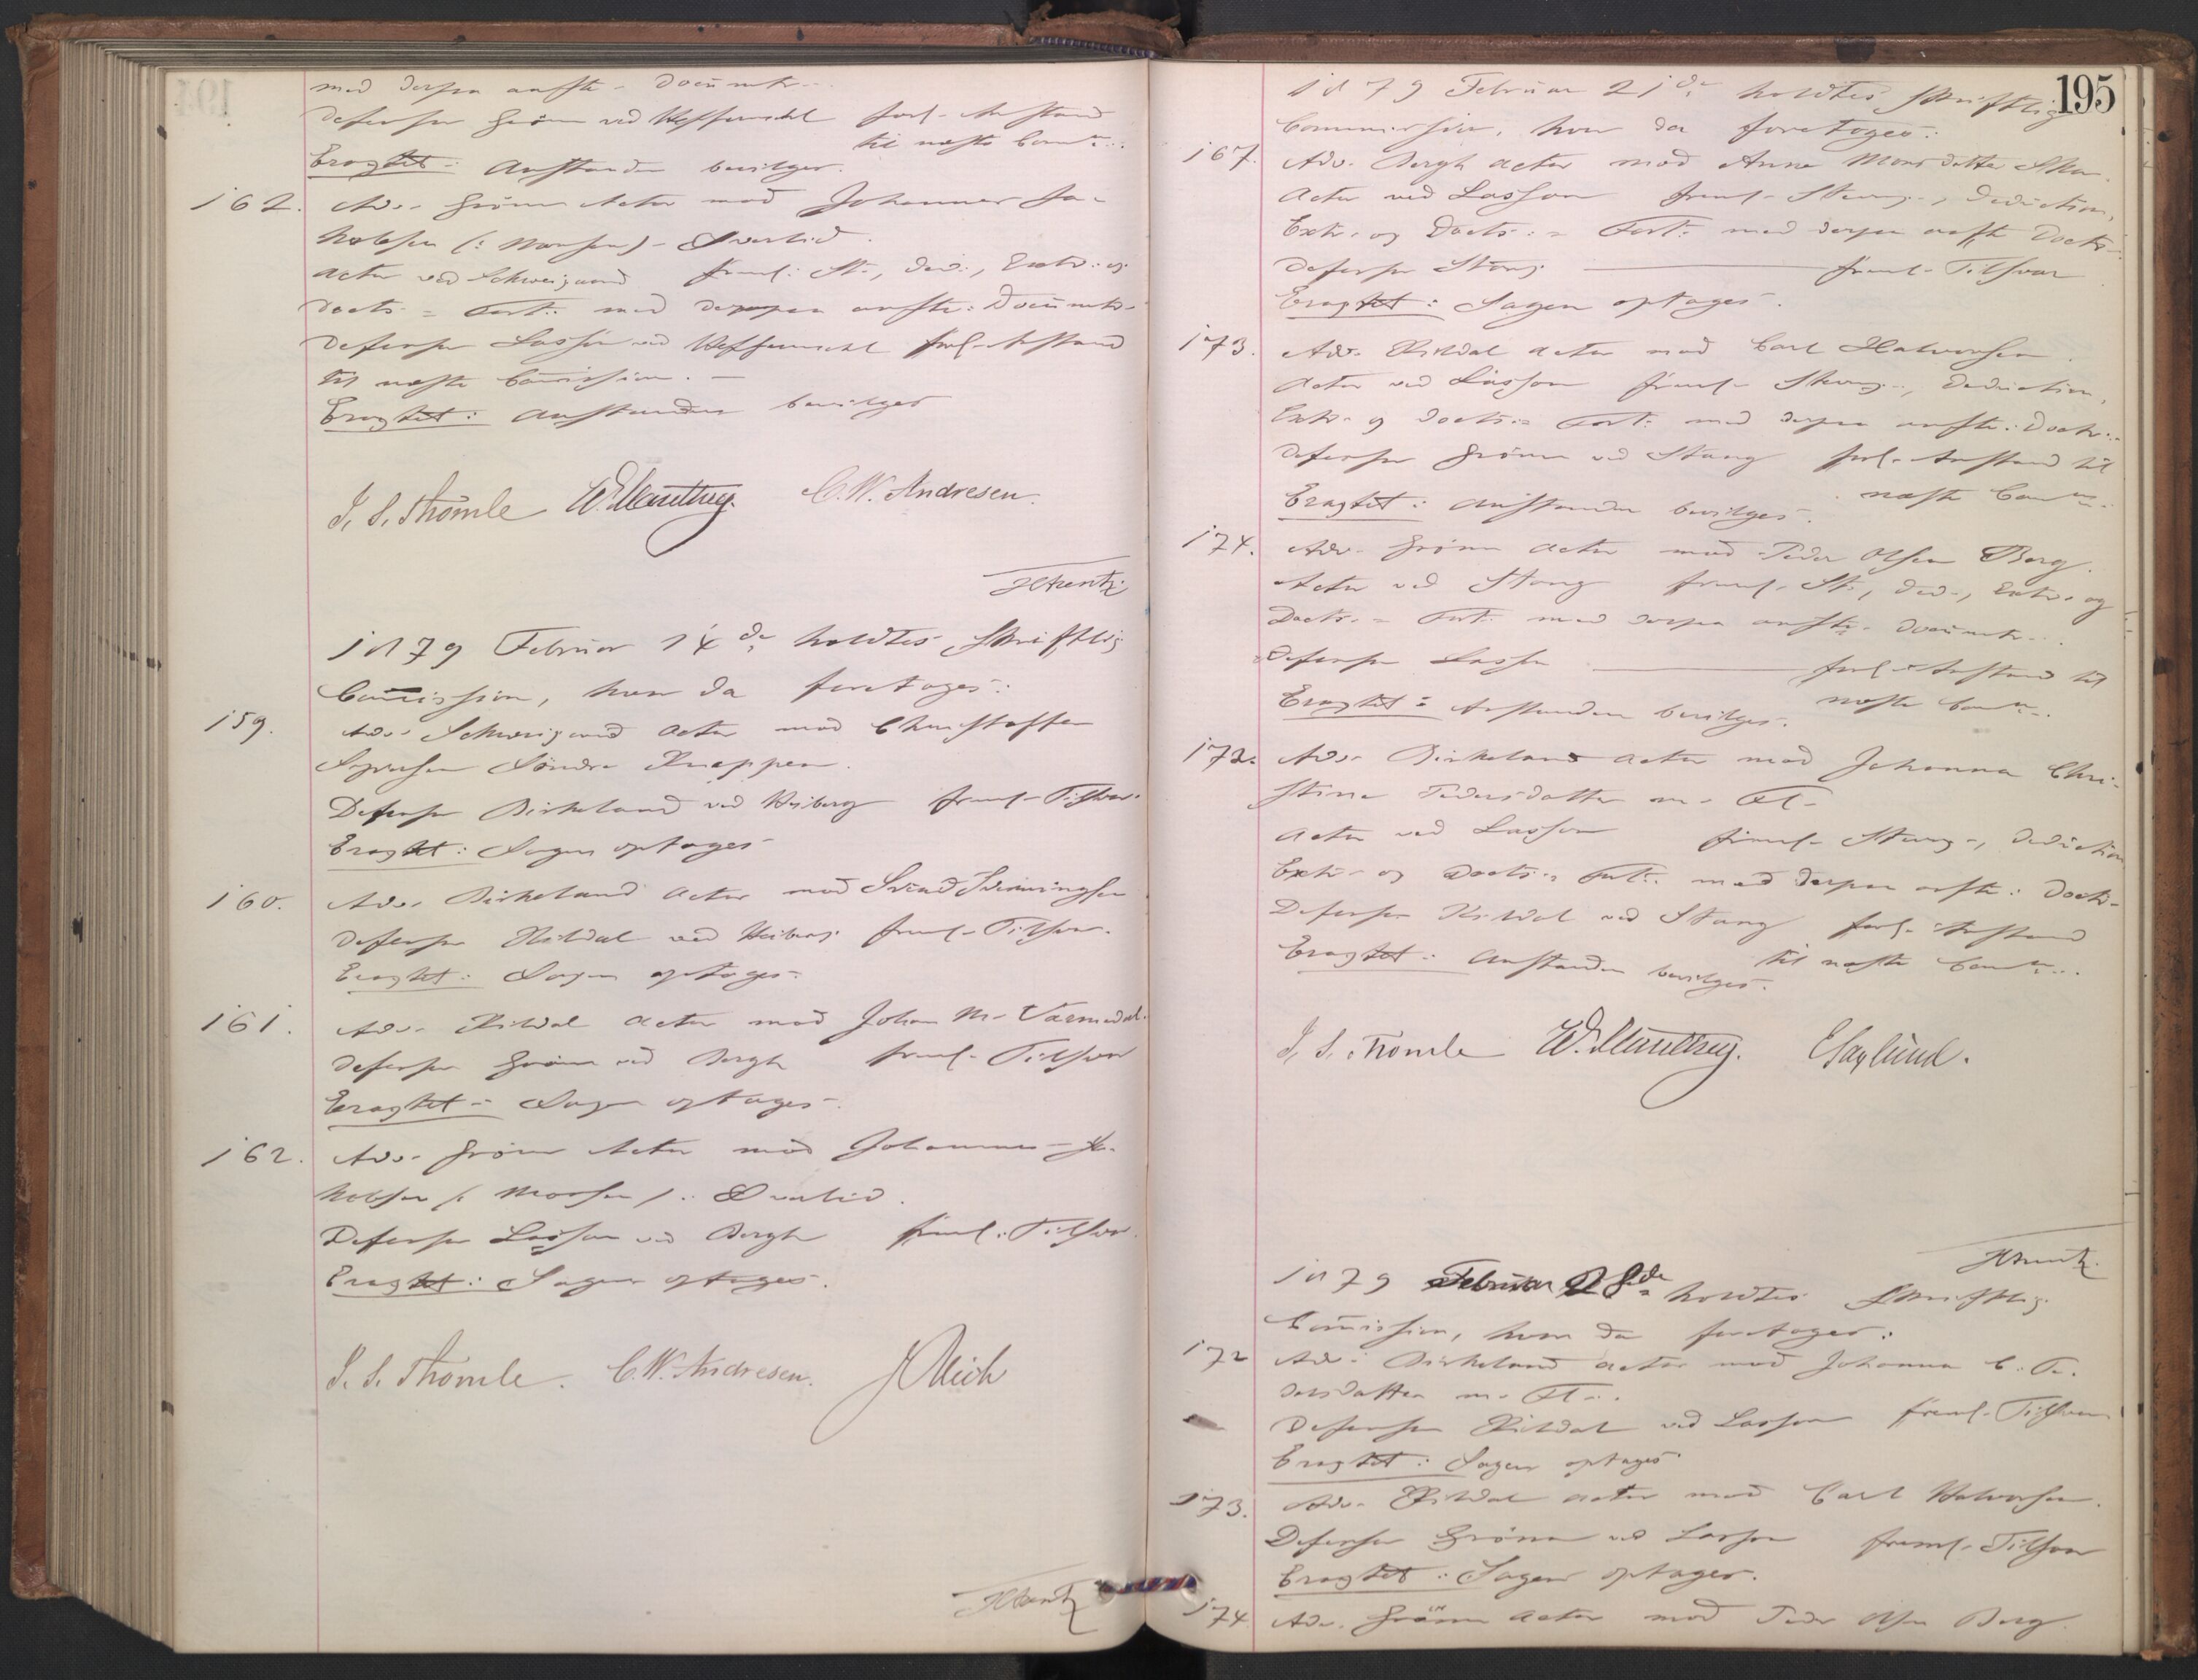 med derpaa anførte Documenter
Defensor Grönn ved Helfernæhl forl. Anstand
til næste Comm:
Eragtet: Anstanden bevilges.
162. Adv. Grönn Actor mod Johannes Ja-
kobsen (: Monsen) Qvarlid.
Actor ved Schweigaard freml: St., Ded:, Extr: og
Docts = Fort: med derpaa anførte: Documenter
Defensor Lasson ved forl. Anstand
til næste Commission. –
Eragtet: Anstanden bevilges
J. S. Thomle W. C. W. Andresen.
1879 Februar 14de holdtes Skriftlig
Commission, hvor da foretoges:
159. Adv. Schweigaard Actor mod Christoffer
Søndre Knappen.
Defensor Birkeland ved Heiberg freml. Tilsvar.
Eragtet: Sagen optages
160. Adv. Birkeland Actor mod Svend Svenningsen
Defensor Kildal ved Heiberg freml. Tilsvar.
Eragtet: Sagen optages.
161. Adv. Kildal Actor mod Johan M. Varmedal.
Defensor Grönn ved Bergh freml. Tilsvar
Eragtet: Sagen optages.
162. Adv. Grönn Actor mod Johannes Ja-
kobsen (: Monsen): Qvarlid.
Defensor Lasson ved Bergh freml: Tilsvar.
Eragtet: Sagen optages.
J. S. Thomle. C. W. Andresen. J Reich
195
1879 Februar 21de holdtes Skriftlig
Commission, hvor da foretoges:
167. Adv. Bergh Actor mod Anne Monsdatter
Actor ved Lasson freml. Stevng., Deduction,
Extr. og Docts: = Fort: med derpaa anfte Docts
Defensor Stang freml. Tilsvar
Eragtet: Sagen optages.
173. Adv. Kildal Actor mod Carl Halvorsen.
Actor ved Lasson freml. Stevng., Deduction,
Extr. og Docts: = Fort: med derpaa anfte: Doctr.
Defensor Grönn ved Stang forl. Anstand til
næste Comm:
Eragtet: Anstanden bevilges.
174. Adv. Grönn Actor mod Peder Olsen Berg.
Actor ved Stang freml. St., Ded., Extr. og
Docts. = Fort: med derpaa anfte. Documtr.
Defensor Lasson forl. Anstand til
næste Comm:
Eragtet: Anstanden bevilges.
172. Adv. Birkeland Actor mod Johanna Chri-
stine Pedersdatter m. Fl.
Actor ved Lasson freml. Stevng., Deduction
Extr. og Docts: = Fort: med derpaa anfte: Doctr.
Defensor Kildal ved Stang forl. Anstand
til næste Comm:
Eragtet: Anstanden bevilges.
J. S. Thomle W. E Haglund.
1879 Februar 28de holdtes Skriftlig
Commission, hvor da foretoges:
172 Adv. Birkeland Actor mod Johanna C. Pe-
dersdatter m. Fl.
Defensor Kildal ved Lasson freml. Tilsvar
Eragtet: Sagen optages
173. Adv. Kildal Actor mod Carl Halvorsen.
Defensor Grönn ved Lasson freml. Tilsvar
Eragtet: Sagen optages.
174 Adv. Grönn Actor mod Peder Olsen Berg.